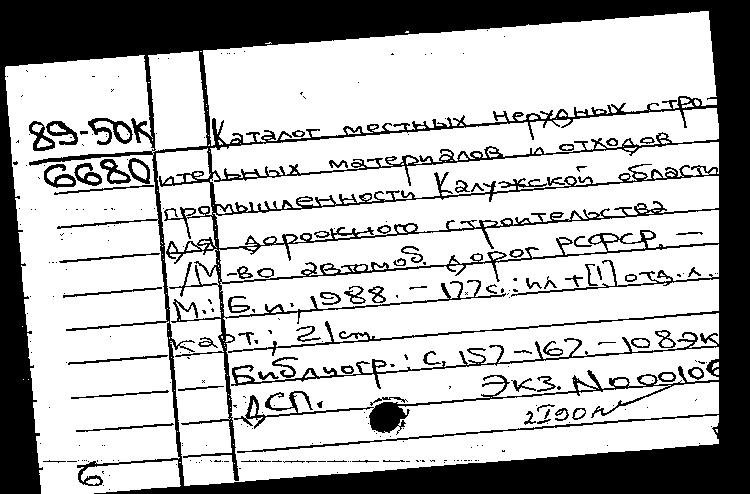 89-50К
6680
Каталог местных нерудных стро-
ительных материалов и отходов
промышленности Калужской области
для дорожного строительства
/М-во автомоб. дорог РСФСР. –
М.: Б. и., 1988. – 177 с.: ил + [1] отд. л.
карт.; 21 см.
Библиогр.: с. 157-167. – 108 эк
ДСП. Экз. N 000106
6